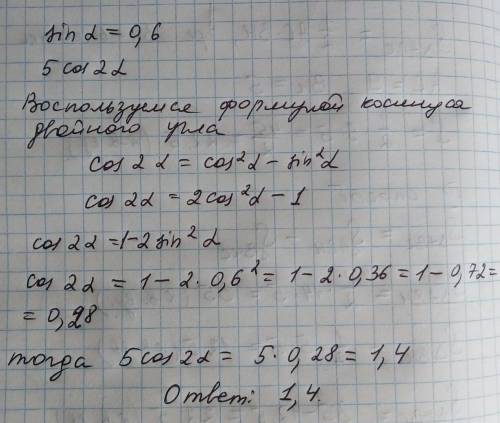 sin α = 0,6
5 cos 2α
Воспользуемся формулой косинуса
двойного угла
cos 2α = cos²α − sin²α
cos 2α = 2cos²α − 1
cos 2α = 1 − 2 sin² α
cos 2α = 1 − 2 · 0,6² = 1 − 2 · 0,36 = 1 − 0,72 =
= 0,28
тогда 5 cos 2α = 5 · 0,28 = 1,4
Ответ: 1,4.